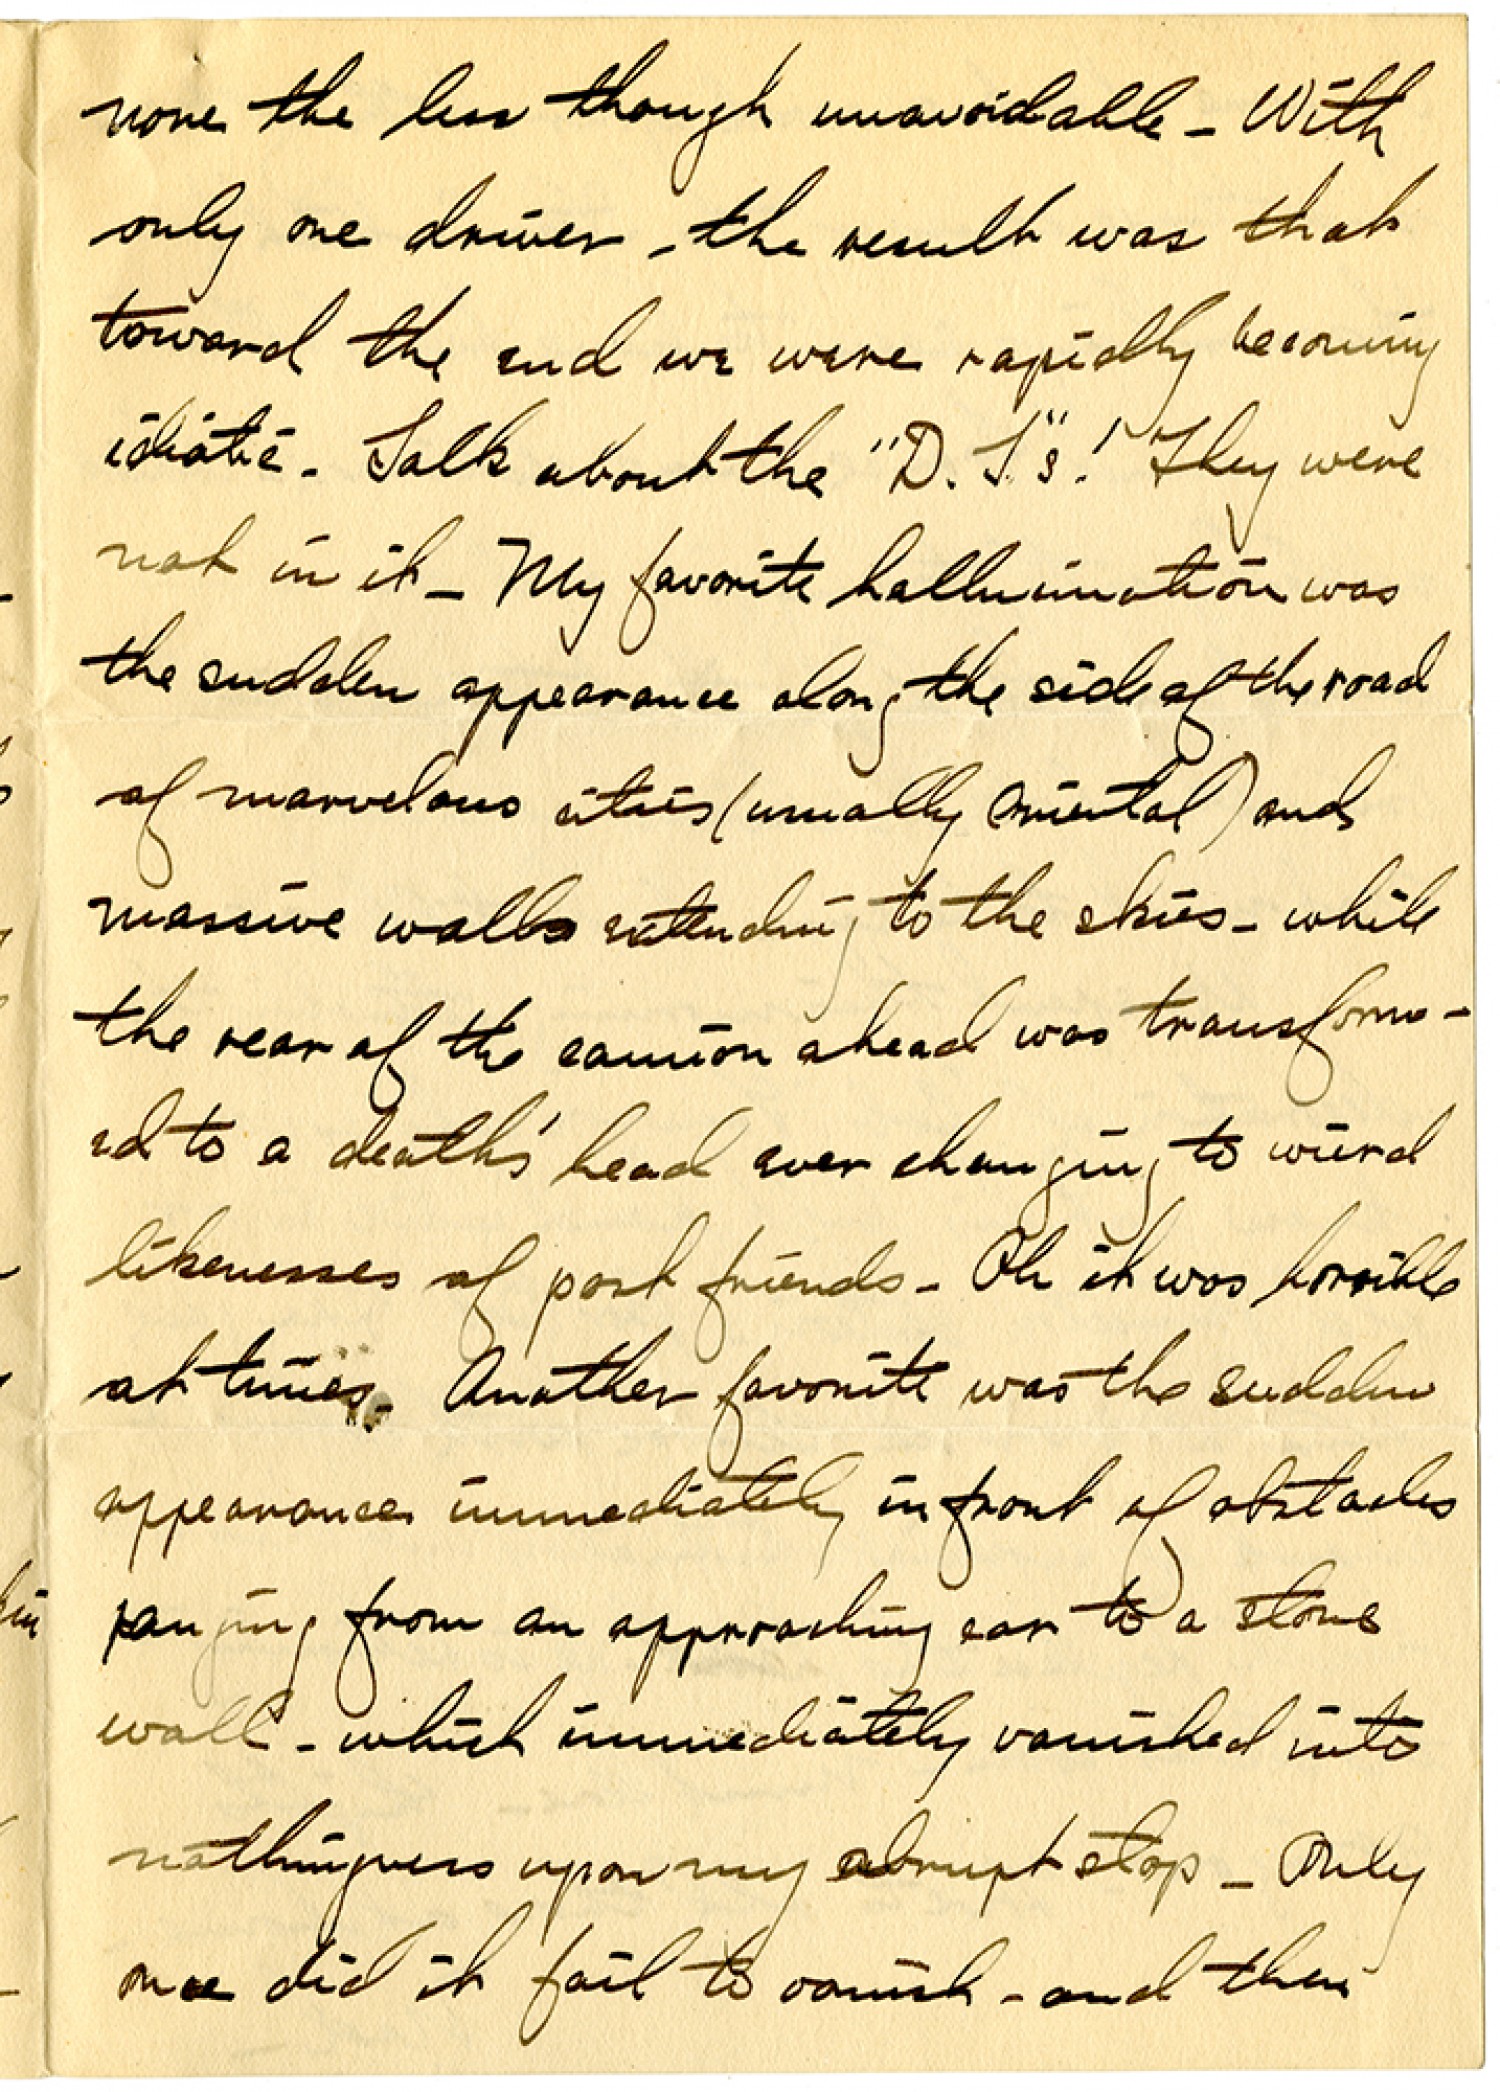 none the less though unavoidable - With
only one driver - the result was that
toward the end we were rapidly becoming
idiotic - Talk about the "D. T."s! They were
not in it - My favorite hallucination was
the sudden appearance along the side of the road
of marvelous cities (usually Oriental) and
massive walls extending to the skies - while
the rear of the camion ahead was transform-
ed to a death's head ever changing to wierd
likenesses of past friends - Oh it was horrible
at times. Another favorite was the sudden
appearance immediately in front of obstacles
ranging from an approaching car to a stone
wall - which immediately vanished into
nothingness upon my abrupt stop - Only
once did it fail to vanish - and then